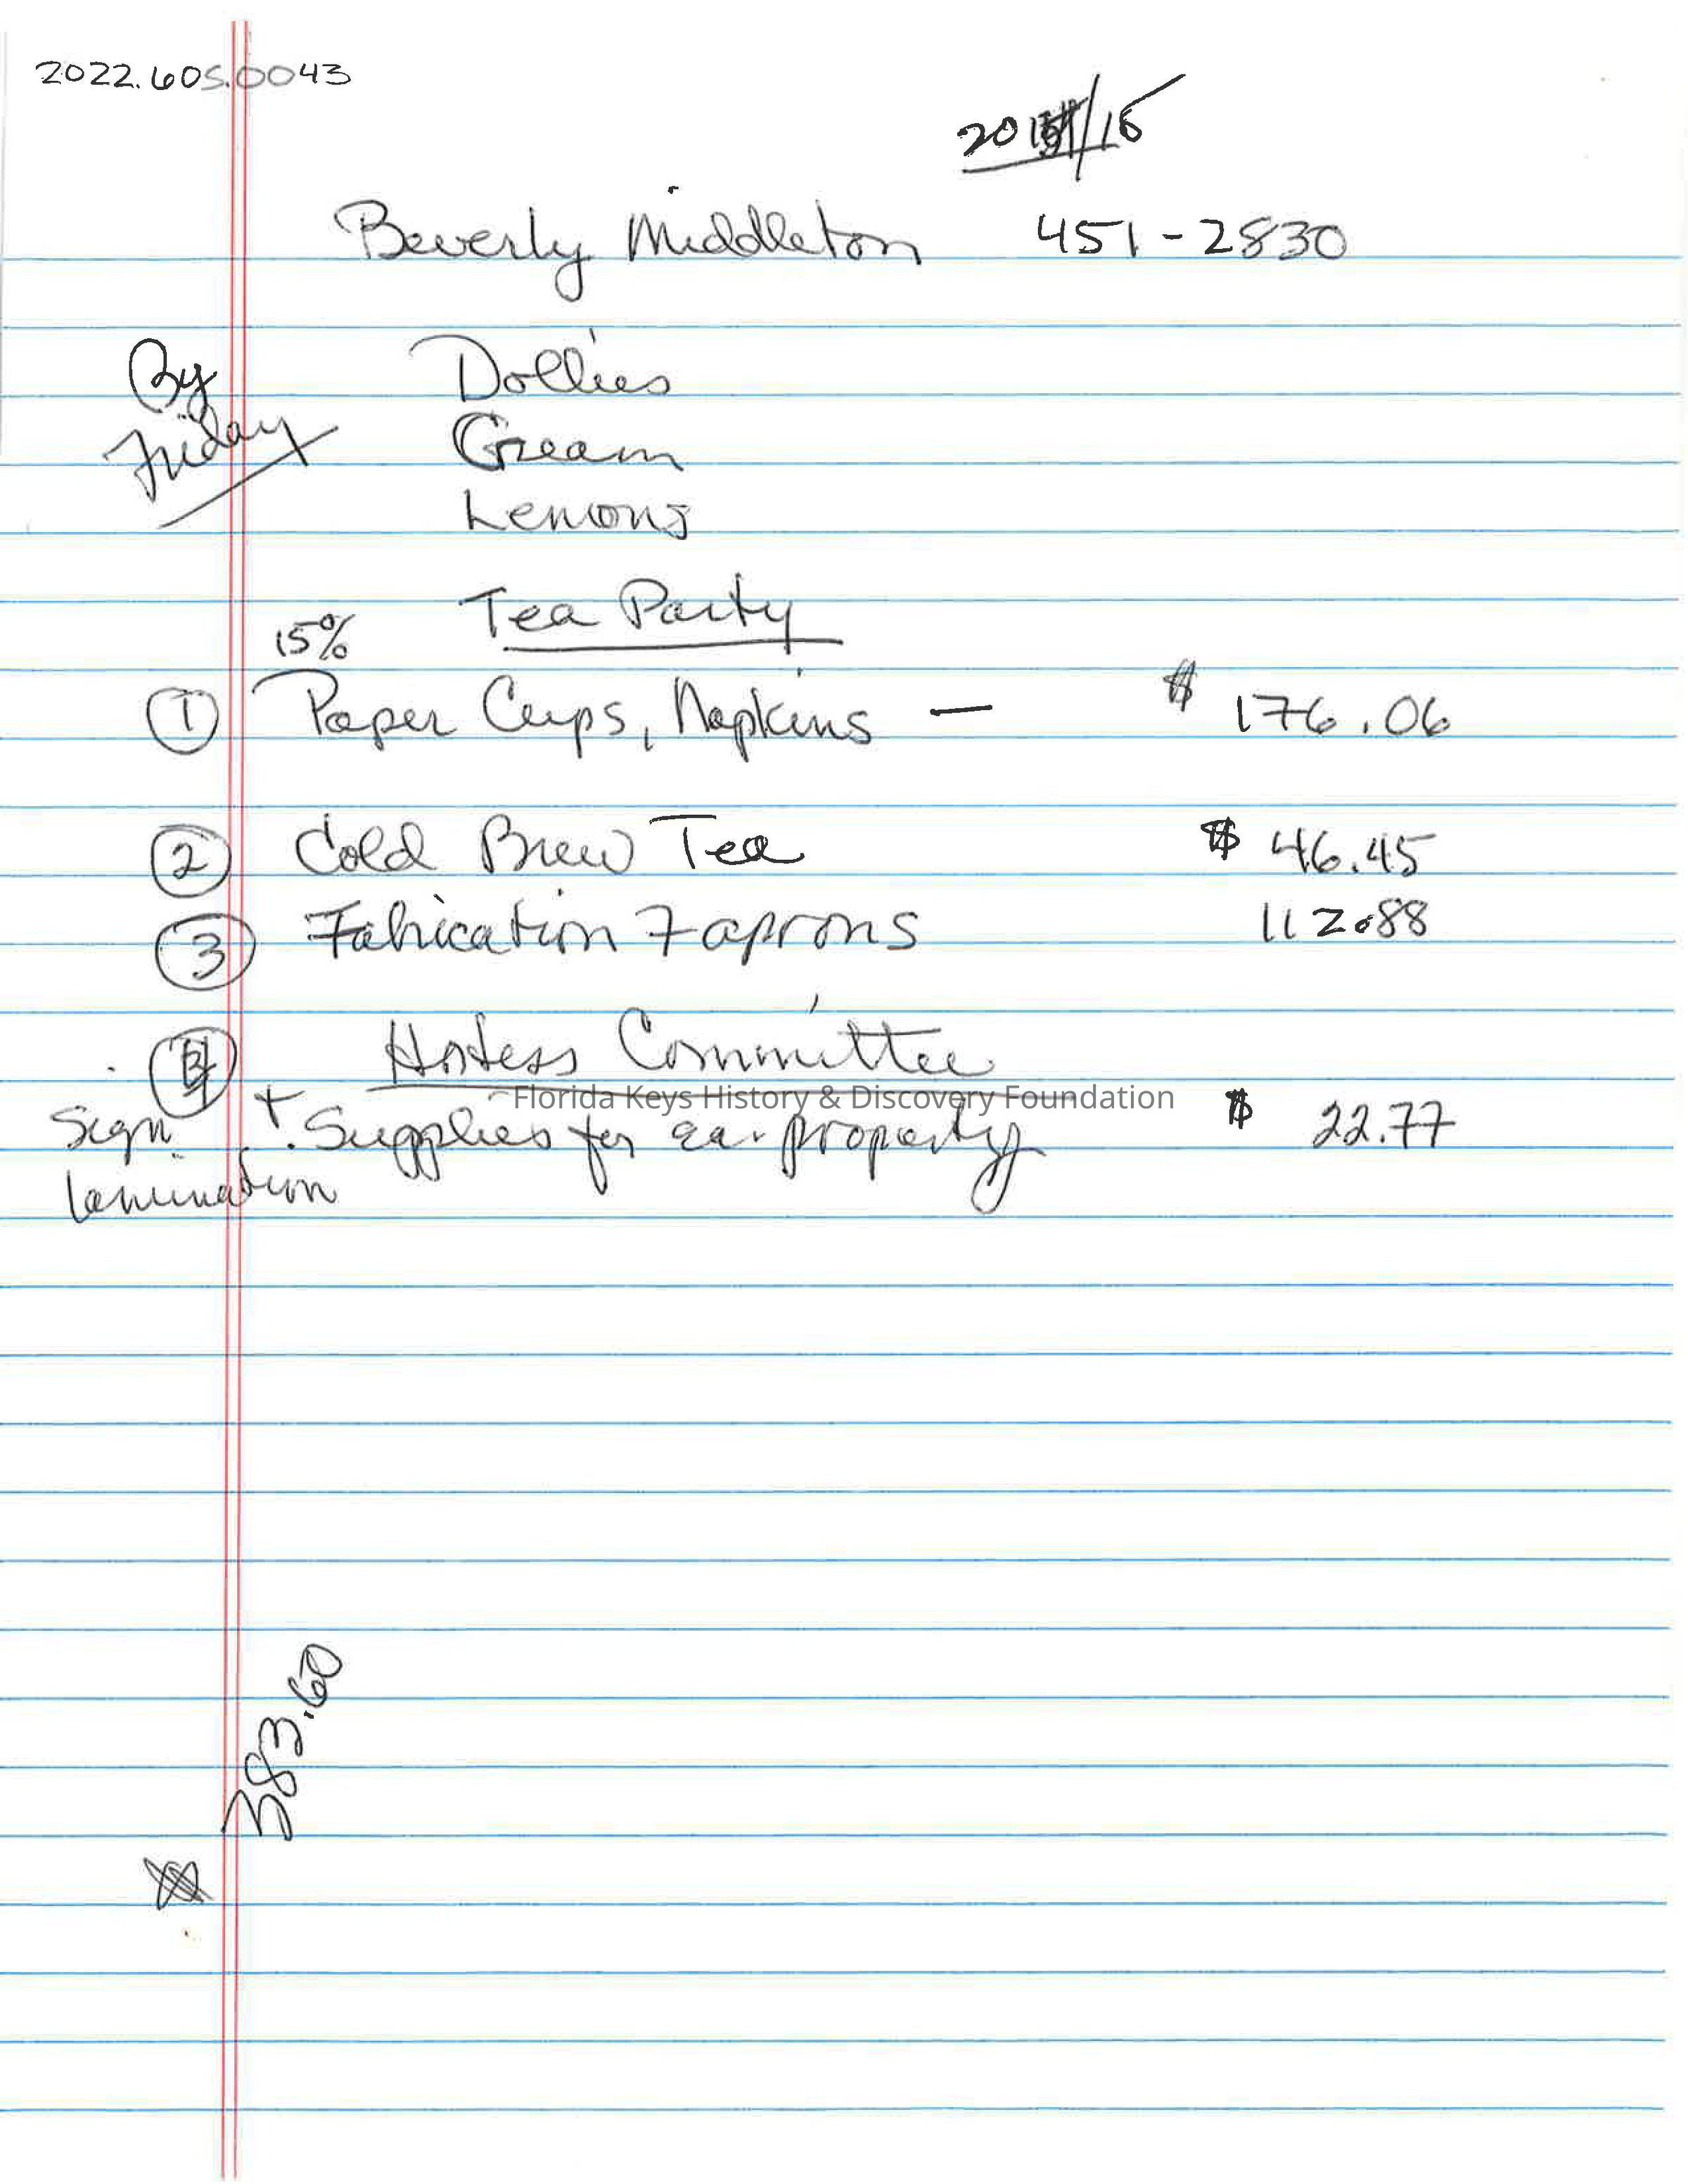 2022.605.0043
2015/16
Beverly Middleton 451-2830
By Friday
Dollies
Cream
Lemons
15% Tea Party
1 Paper Cups, Napkins — $ 176.06
2 Cold Brew Tea $ 46.45
3 Fabrication 7 aprons 112.88
4 Hostess Committee
Florida Keys History & Discovery Foundation
Sign lamination + Supplies for ea. property $ 22.77
383.60